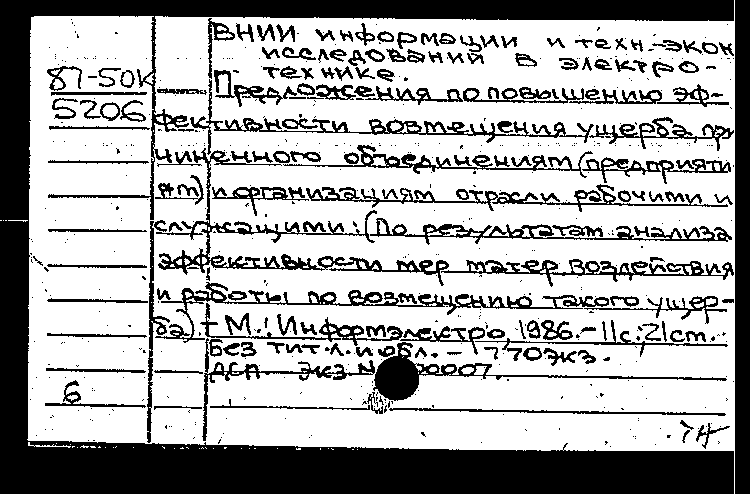 ВНИИ информации и техн.-экон
исследований в электро-
технике.
87-50К
5206
Предложения по повышению эф-
фективности возмещения ущерба, при
чиненного объединениям (предприяти
ям) и организациям отрасли рабочими и
служащими: (По результатам анализа
эффективности мер матер. воздействия
и работы по возмещению такого ущер-
ба) - М.: Информэлектро, 1986. - 11с.; 21см.
Без тит. л. и обл. - 770экз.
ДСП. Экз N 00007.
6